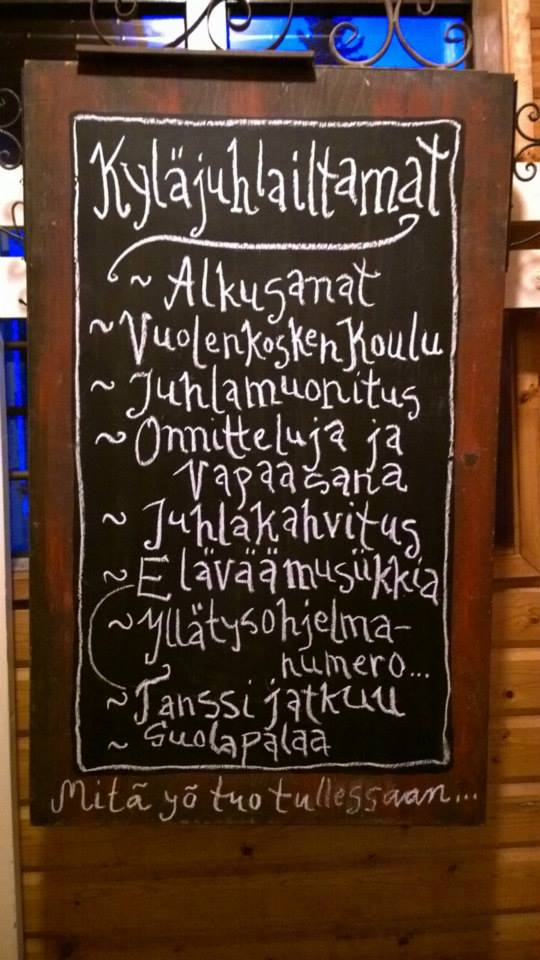 Kyläjuhlailtamat
~ Alkusanat
~ Vuolenkosken Koulu
~ Juhlamuonitus
~ Onnitteluja ja
vapaa sana
~ Juhlakahvitus
~ Elävää musiikkia
~ Yllätysohjelma-
numero...
~ Tanssi jatkuu
~ Suolapalaa
Mitä yö tuo tullessaan...